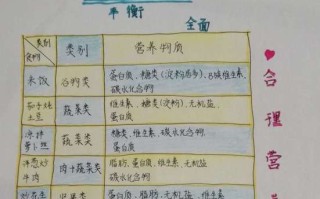 平衡
全面
类别
食物
类别
营养物质
米饭
谷物类
蛋白质、糖类(淀粉居多)、B族维生素、
碳水化合物
茄子炖
土豆
蔬菜类
维生素、糖类(淀粉)、无机盐、
蛋白质
凉拌
萝卜条
蔬菜类
糖类、维生素、无机盐、
碳水化合物
洋葱炒
牛肉
肉+蔬菜类
脂肪、蛋白质、维生素、无机盐
碳水化合物
蛋白质、脂肪、无机盐、维
合
理
营